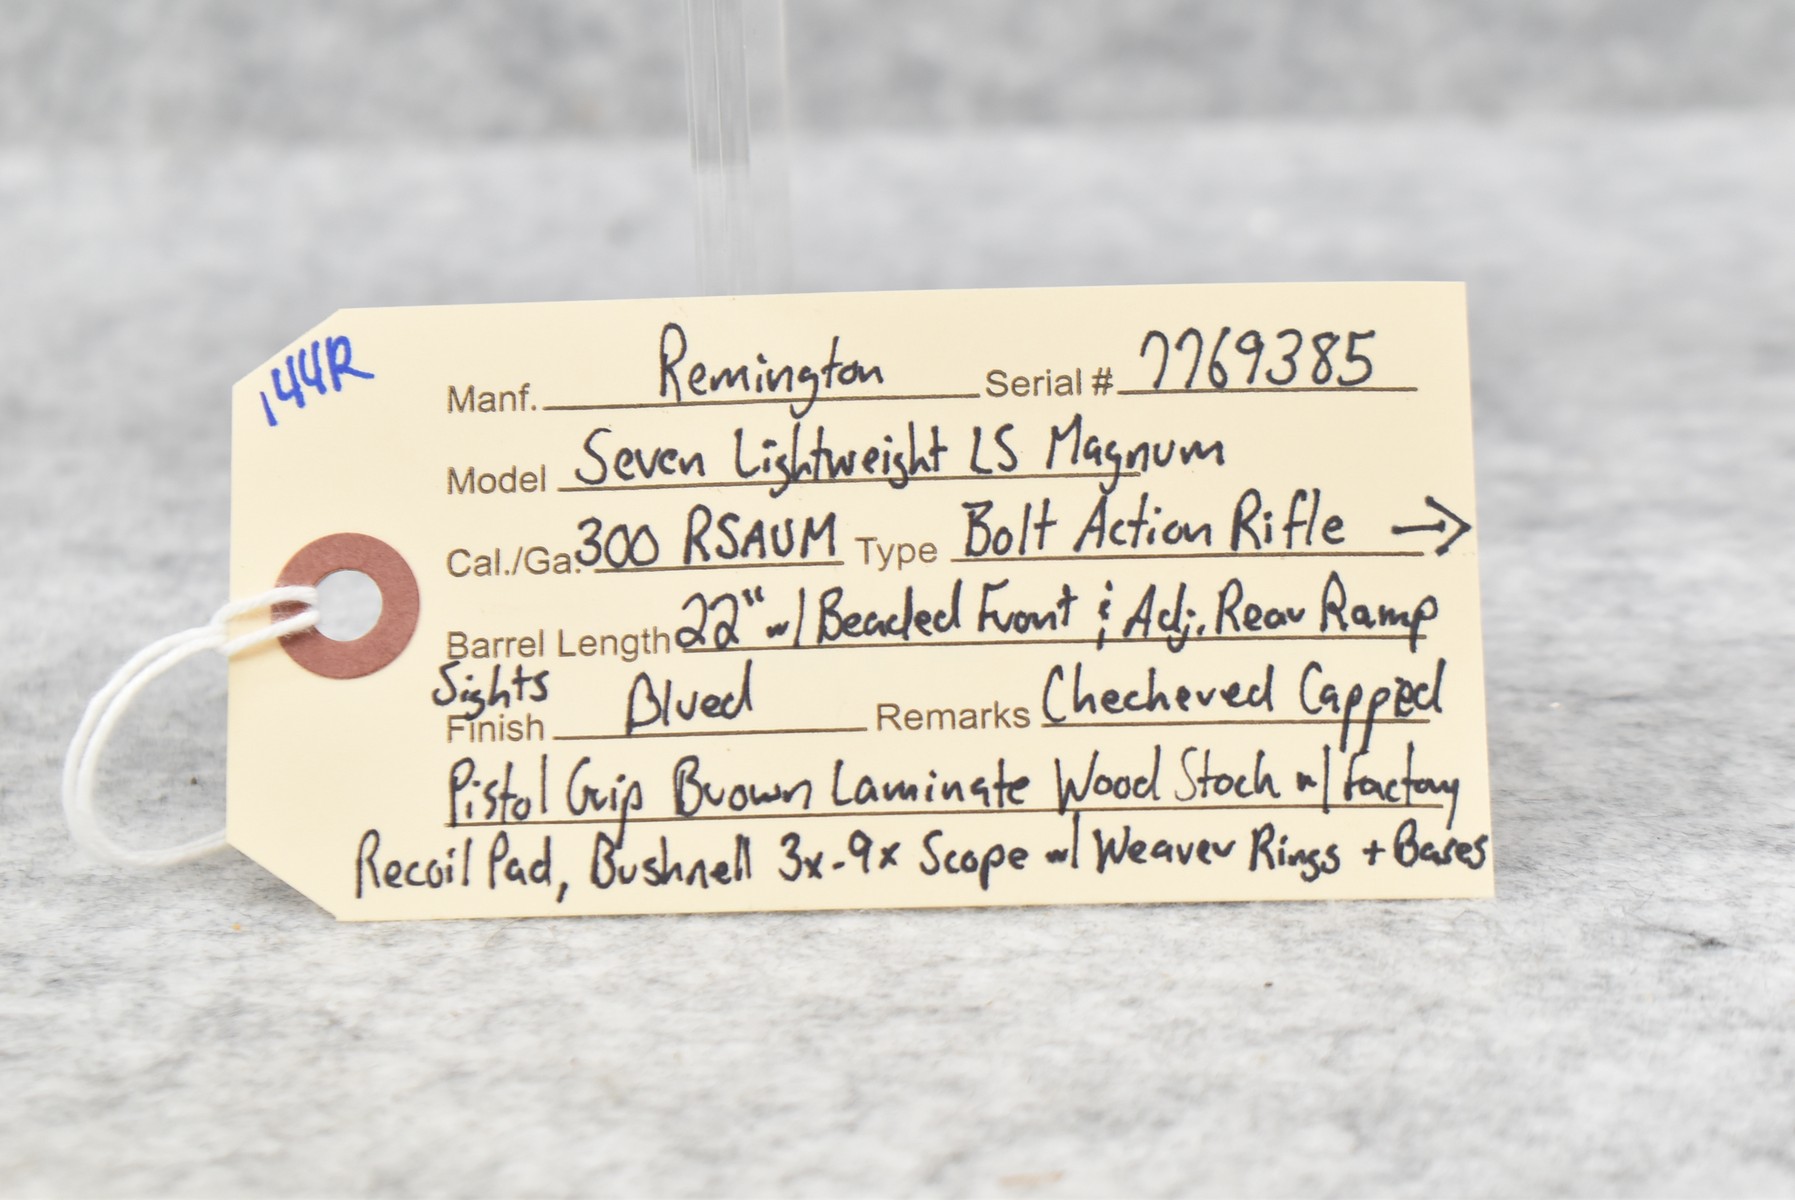 144R
Manf. Remington Serial # 7769385
Model Seven Lightweight LS Magnum
Cal./Ga. 300 RSAUM Type Bolt Action Rifle →
Barrel Length 22" w/ Beaded Front & Adj. Rear Ramp
Sights
Finish Blued Remarks Checkered Capped
Pistol Grip Brown Laminate Wood Stock w/ factory
Recoil Pad, Bushnell 3x-9x Scope w/ Weaver Rings + Bases